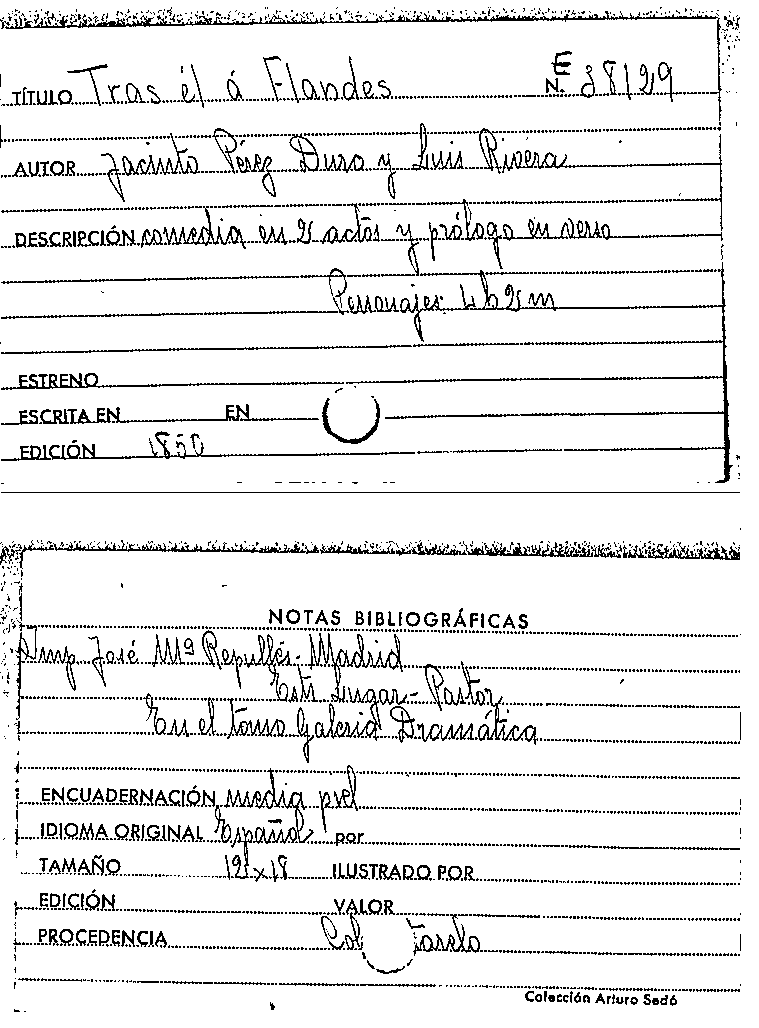 TÍTULO Tras él á Flandes N.E 38129
AUTOR Jacinto Pérez Duro y Luis Rivera
DESCRIPCIÓN comedia en 2 actos y prólogo en verso
Personajes: 4 h 2 m
ESTRENO
ESCRITA EN EN
EDICIÓN 1850
NOTAS BIBLIOGRÁFICAS
Imp José Mª Repullés - Madrid
Lugar - Pastor
En el tomo Galeria Dramática
ENCUADERNACIÓN media piel
IDIOMA ORIGINAL Español por
TAMAÑO 12 x 18 ILUSTRADO POR
EDICIÓN VALOR
PROCEDENCIA Col
Colección Arturo Sedó